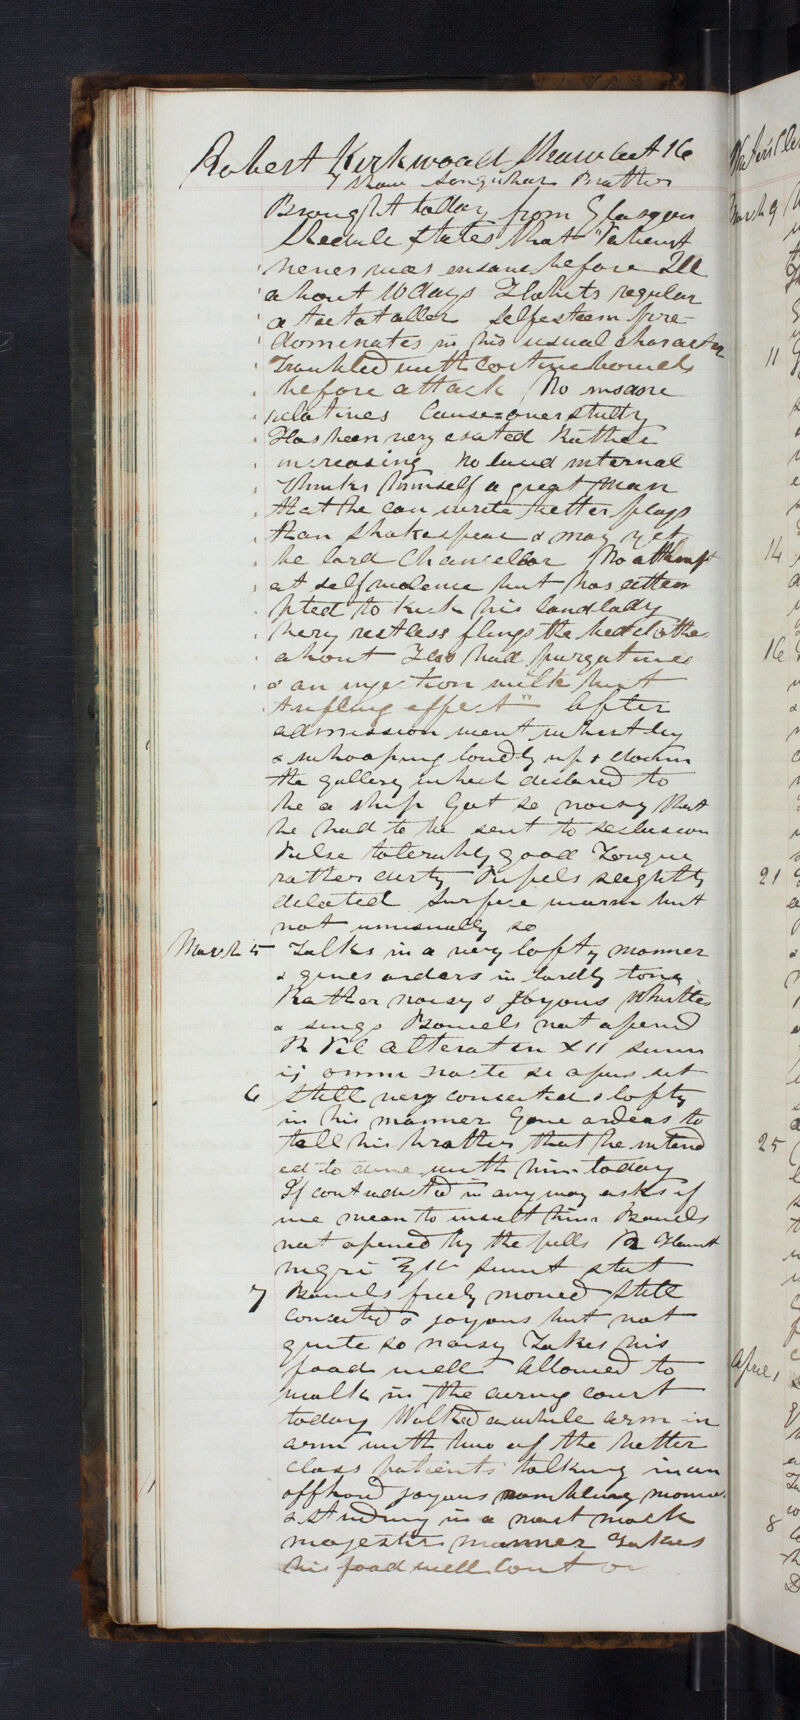 Robert Kirkwood Shaw aet 16
Brought today from Glasgow
Schedule states that "Patient
never was insane before Ill
about 10 days Habits regular
a teetotaller Self esteem pre-
dominates in his usual character
Troubled with costive bowels
before attack No insane
relatives Cause = overstudy
Has been very exated Rather
increasing No lucid interval
Thinks himself a great man
that he can write better plays
than Shakespear & may yet
be lord Chancellor No attempt
at self violence but has attem
pted to kick his landlady
Very restless flings the bedclothes
about Has had purgatives
& an injection with but
trifling effect" After
admission went whistling
& whooping loudly up & down
the gallery which declared to
be a ship Got so noisy that
he had to be sent to seclusion
Pulse tolerably good Tongue
rather dirty Pupils slightly
dilated Surface warm but
not unusually so
March 5 Talks in a very lofty manner
& gives orders in lordly tone
Rather noisy & joyous Whistles
& sings Bowels not opened
R Pil alterat XII sum
ij omni nocte
6 Still very conceited & lofty
in his manner Gave orders to
tell his brother that he intend
ed to dine with him today
If contradicted in any way asks if
we mean to insult him Bowels
not opened by the pills R Haust
nigri sumt stat
7 Bowels freely moved Still
conceited & joyous but not
quite so noisy Takes his
food well Allowed to
walk in the airing court
today Walked awhile arm in
arm with two of the better
class patients talking in an
offhand joyous rambling manner
& striding in a most mock
majestic manner Takes
his food well Cont
March 9
11
14
16
21
25
April 1
8